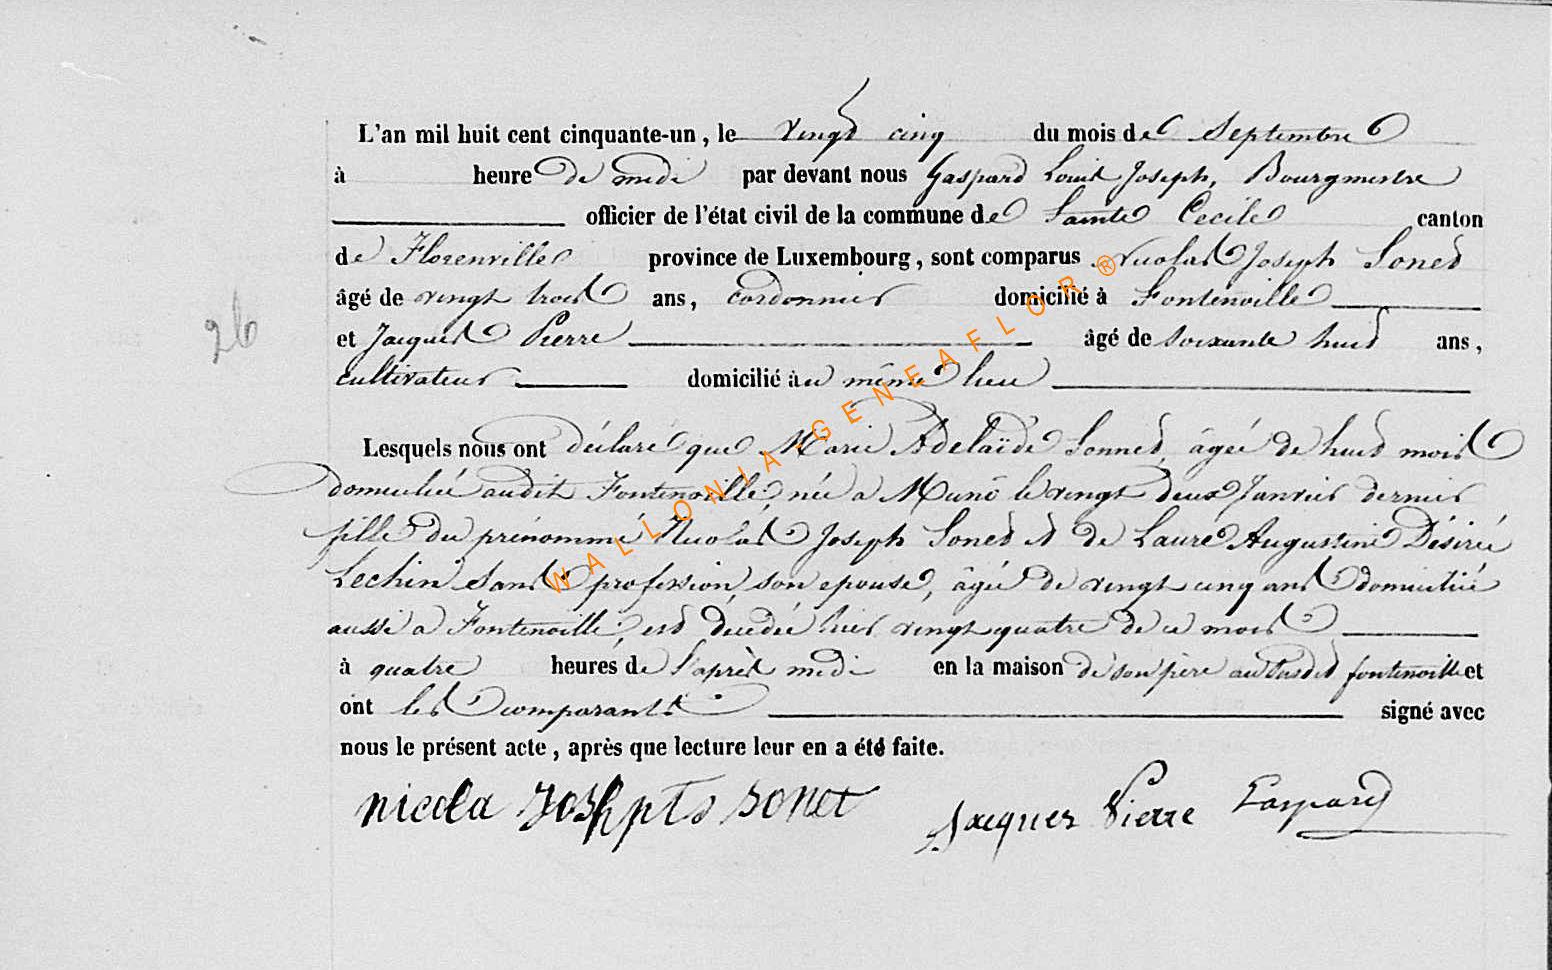 L'an mil huit cent cinquante-un, le vingt cinq du mois de Septembre
à heure de midi par devant nous Gaspard Louis Joseph, Bourgmestre
officier de l'état civil de la commune de Sainte Cecile canton
de Florenville province de Luxembourg, sont comparus Nicolas Joseph Sonet
âgé de vingt trois ans, cordonnier domicilié à Fontenoille
et Jacques Pierre âgé de soixante huit ans,
26
cultivateur domicilié au même lieu
Lesquels nous ont déclaré que Marie Adelaïde Sonnet, âgée de huit mois
domiciliée audit Fontenoille née a Muno le vingt deux Janvier dernier
fille du prénommé Nicolas Joseph Sonet et de Laure Augustine Désirée
Lechin sans profession, son epouse, âgée de vingt cinq ans domiciliée
aussi a Fontenoille, est décédée hier vingt quatre de ce mois
à quatre heures de l'après midi en la maison de son père fontenoille et
ont les comparants signé avec
nous le présent acte, après que lecture leur en a été faite.
nicola Sonet
Jacques Pierre Gaspard
WALLONIA-GENEAFLOR®